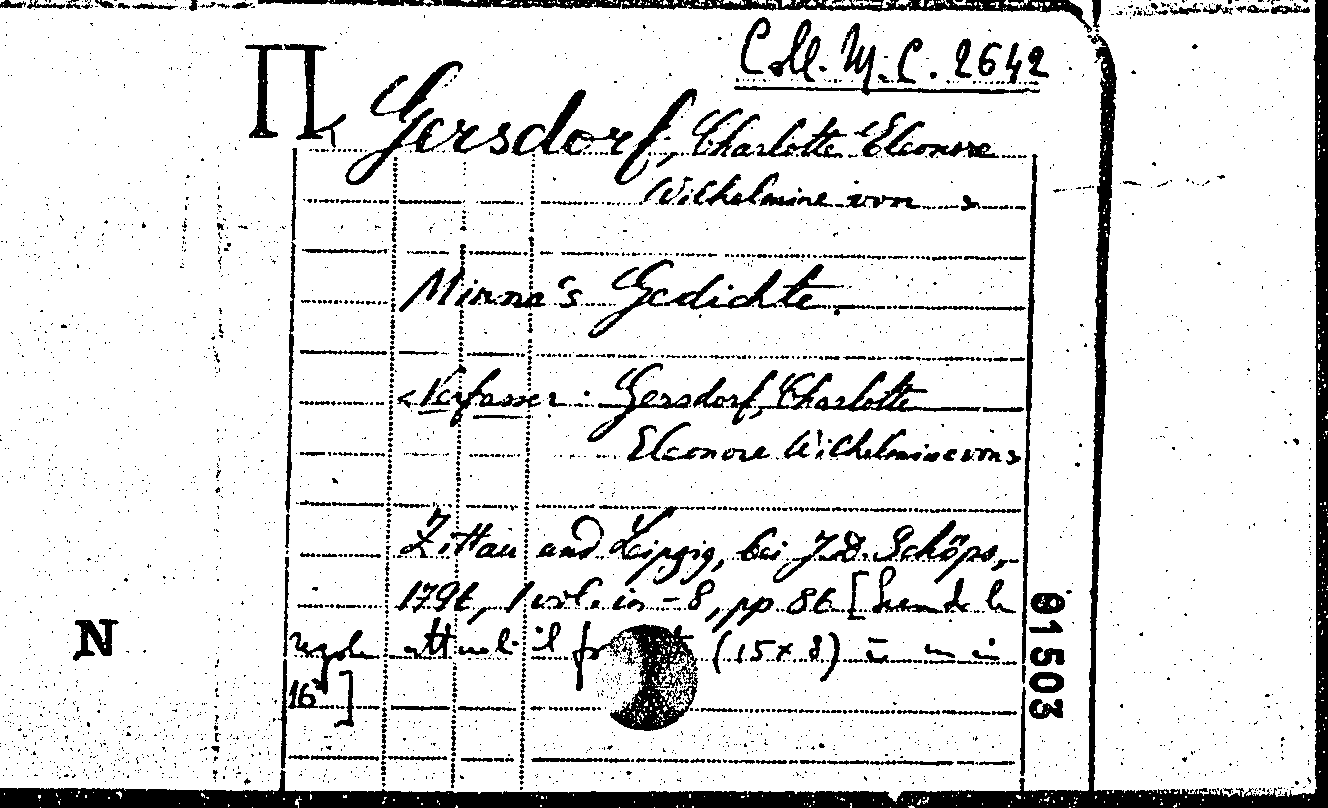 Coll. M.C. 2642
Π < Gersdorf, Charlotte Eleonore
Wilhelmine von >
Minna's Gedichte.
< Verfasser: Gersdorf, Charlotte
Eleonore Wilhelmine von >
Zittau und Leipzig, bei J.D. Schöps,
1796, 1 vol. in-8, pp 86 [secondo le
regole attuali il (15x8) è un in
16°]
N
01503